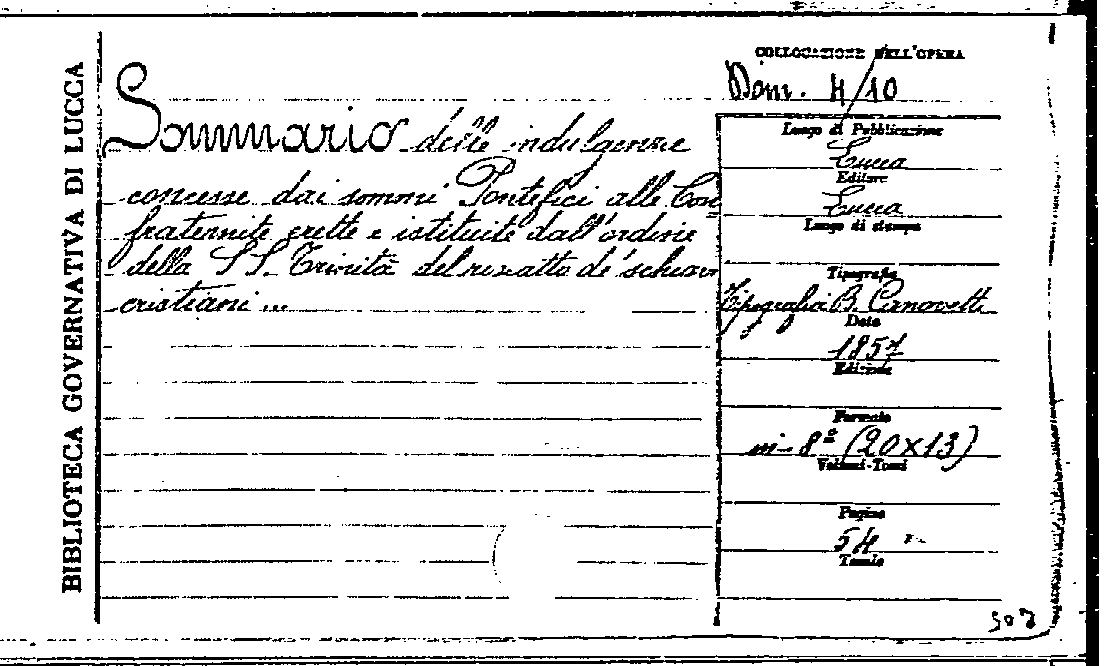 BIBLIOTECA GOVERNATIVA DI LUCCA
COLLOCAZIONE DELL'OPERA
Dom. 4/10
Sommario delle indulgenze
concesse dai sommi Pontefici alle Con
fraternite erette e istituite dall'ordine
della SS. Trinità del riscatto de' schiavi
cristiani ...
Luogo di Pubblicazione
Lucca
Editore
Lucca
Luogo di stampa
Tipografia
Tipografia B. Canovetti
Data
1857
Edizione
Formato
in-8º (20x13)
Volumi-Tomi
Pagine
54
Tavole
507